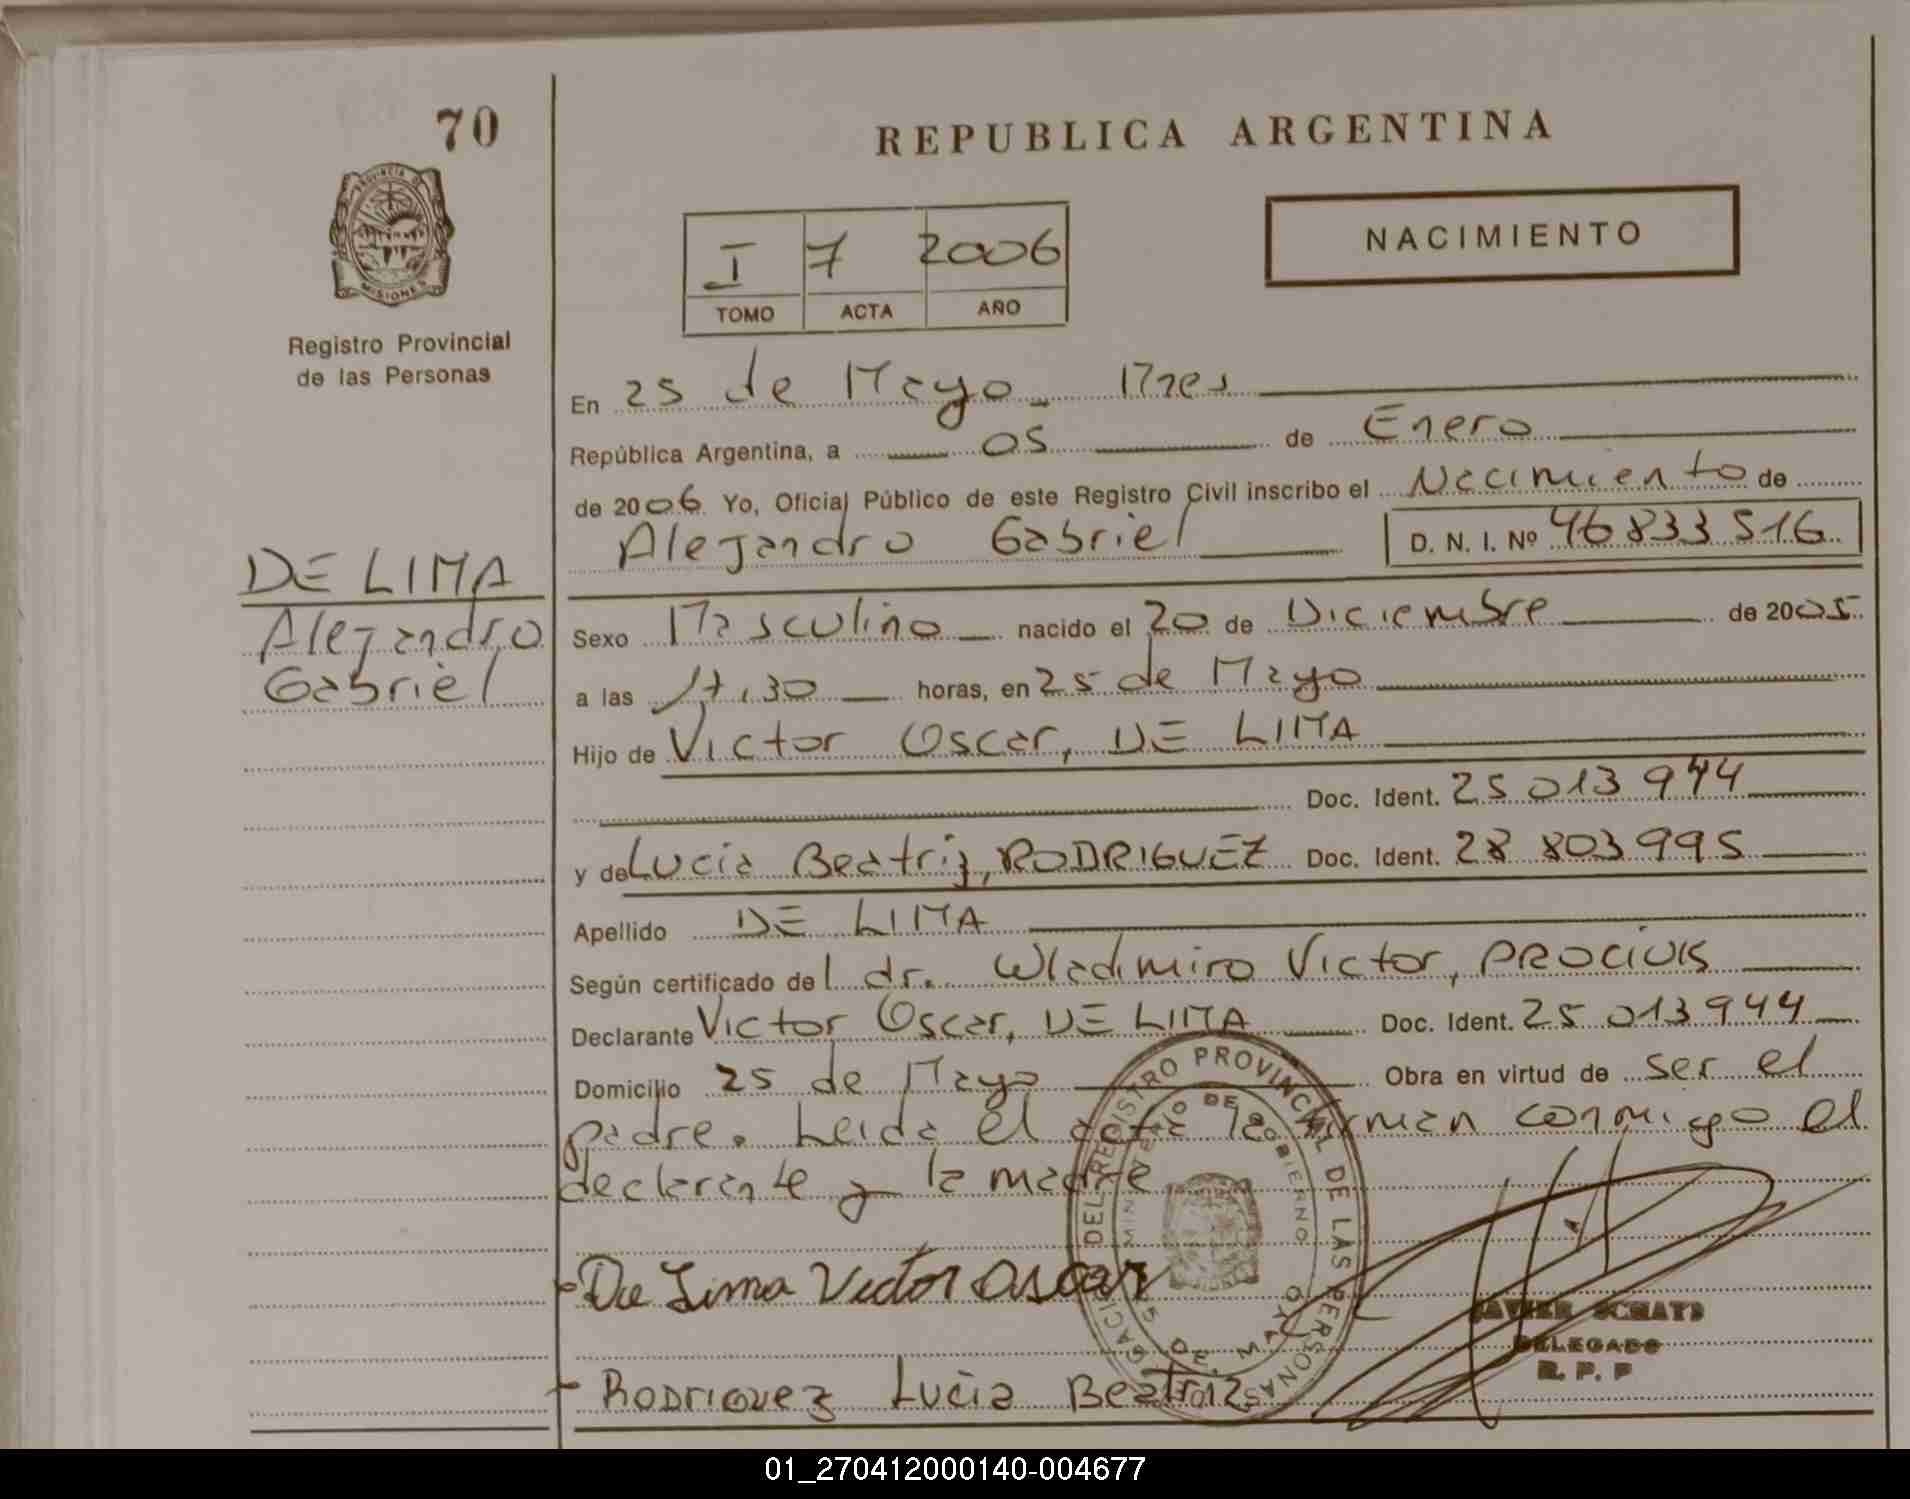 70
REPUBLICA ARGENTINA
PROVINCIA DE
MISIONES
Registro Provincial
de las Personas
NACIMIENTO
I 7 2006
TOMO ACTA AÑO
En 25 de Mayo Mnes
República Argentina, a 05 de Enero
de 2006. Yo, Oficial Público de este Registro Civil inscribo el Nacimiento de
Alejandro Gabriel D. N. I. Nº 46 833 516
DE LIMA
Alejandro
Gabriel
Sexo Masculino nacido el 20 de Diciembre de 2005
a las 17,30 horas, en 25 de Mayo
Hijo de Victor Oscar, DE LIMA
Doc. Ident. 25 013 944
y de Lucia Beatriz, RODRIGUEZ Doc. Ident. 28 803 995
Apellido DE LIMA
Según certificado del dr. Wladimiro Victor, PROCIUK
Declarante Victor Oscar, DE LIMA Doc. Ident. 25 013 944
Domicilio 25 de Mayo Obra en virtud de ser el
padre. Leida el acta la firman conmigo el
declarante y la madre
De Lima Victor Oscar
Rodriguez Lucia Beatriz
DEL REGISTRO PROVINCIAL DE LAS PERSONAS
MINISTERIO DE GOBIERNO
25 DE MAYO
JAVIER
DELEGADO
R. P. P
01_270412000140-004677